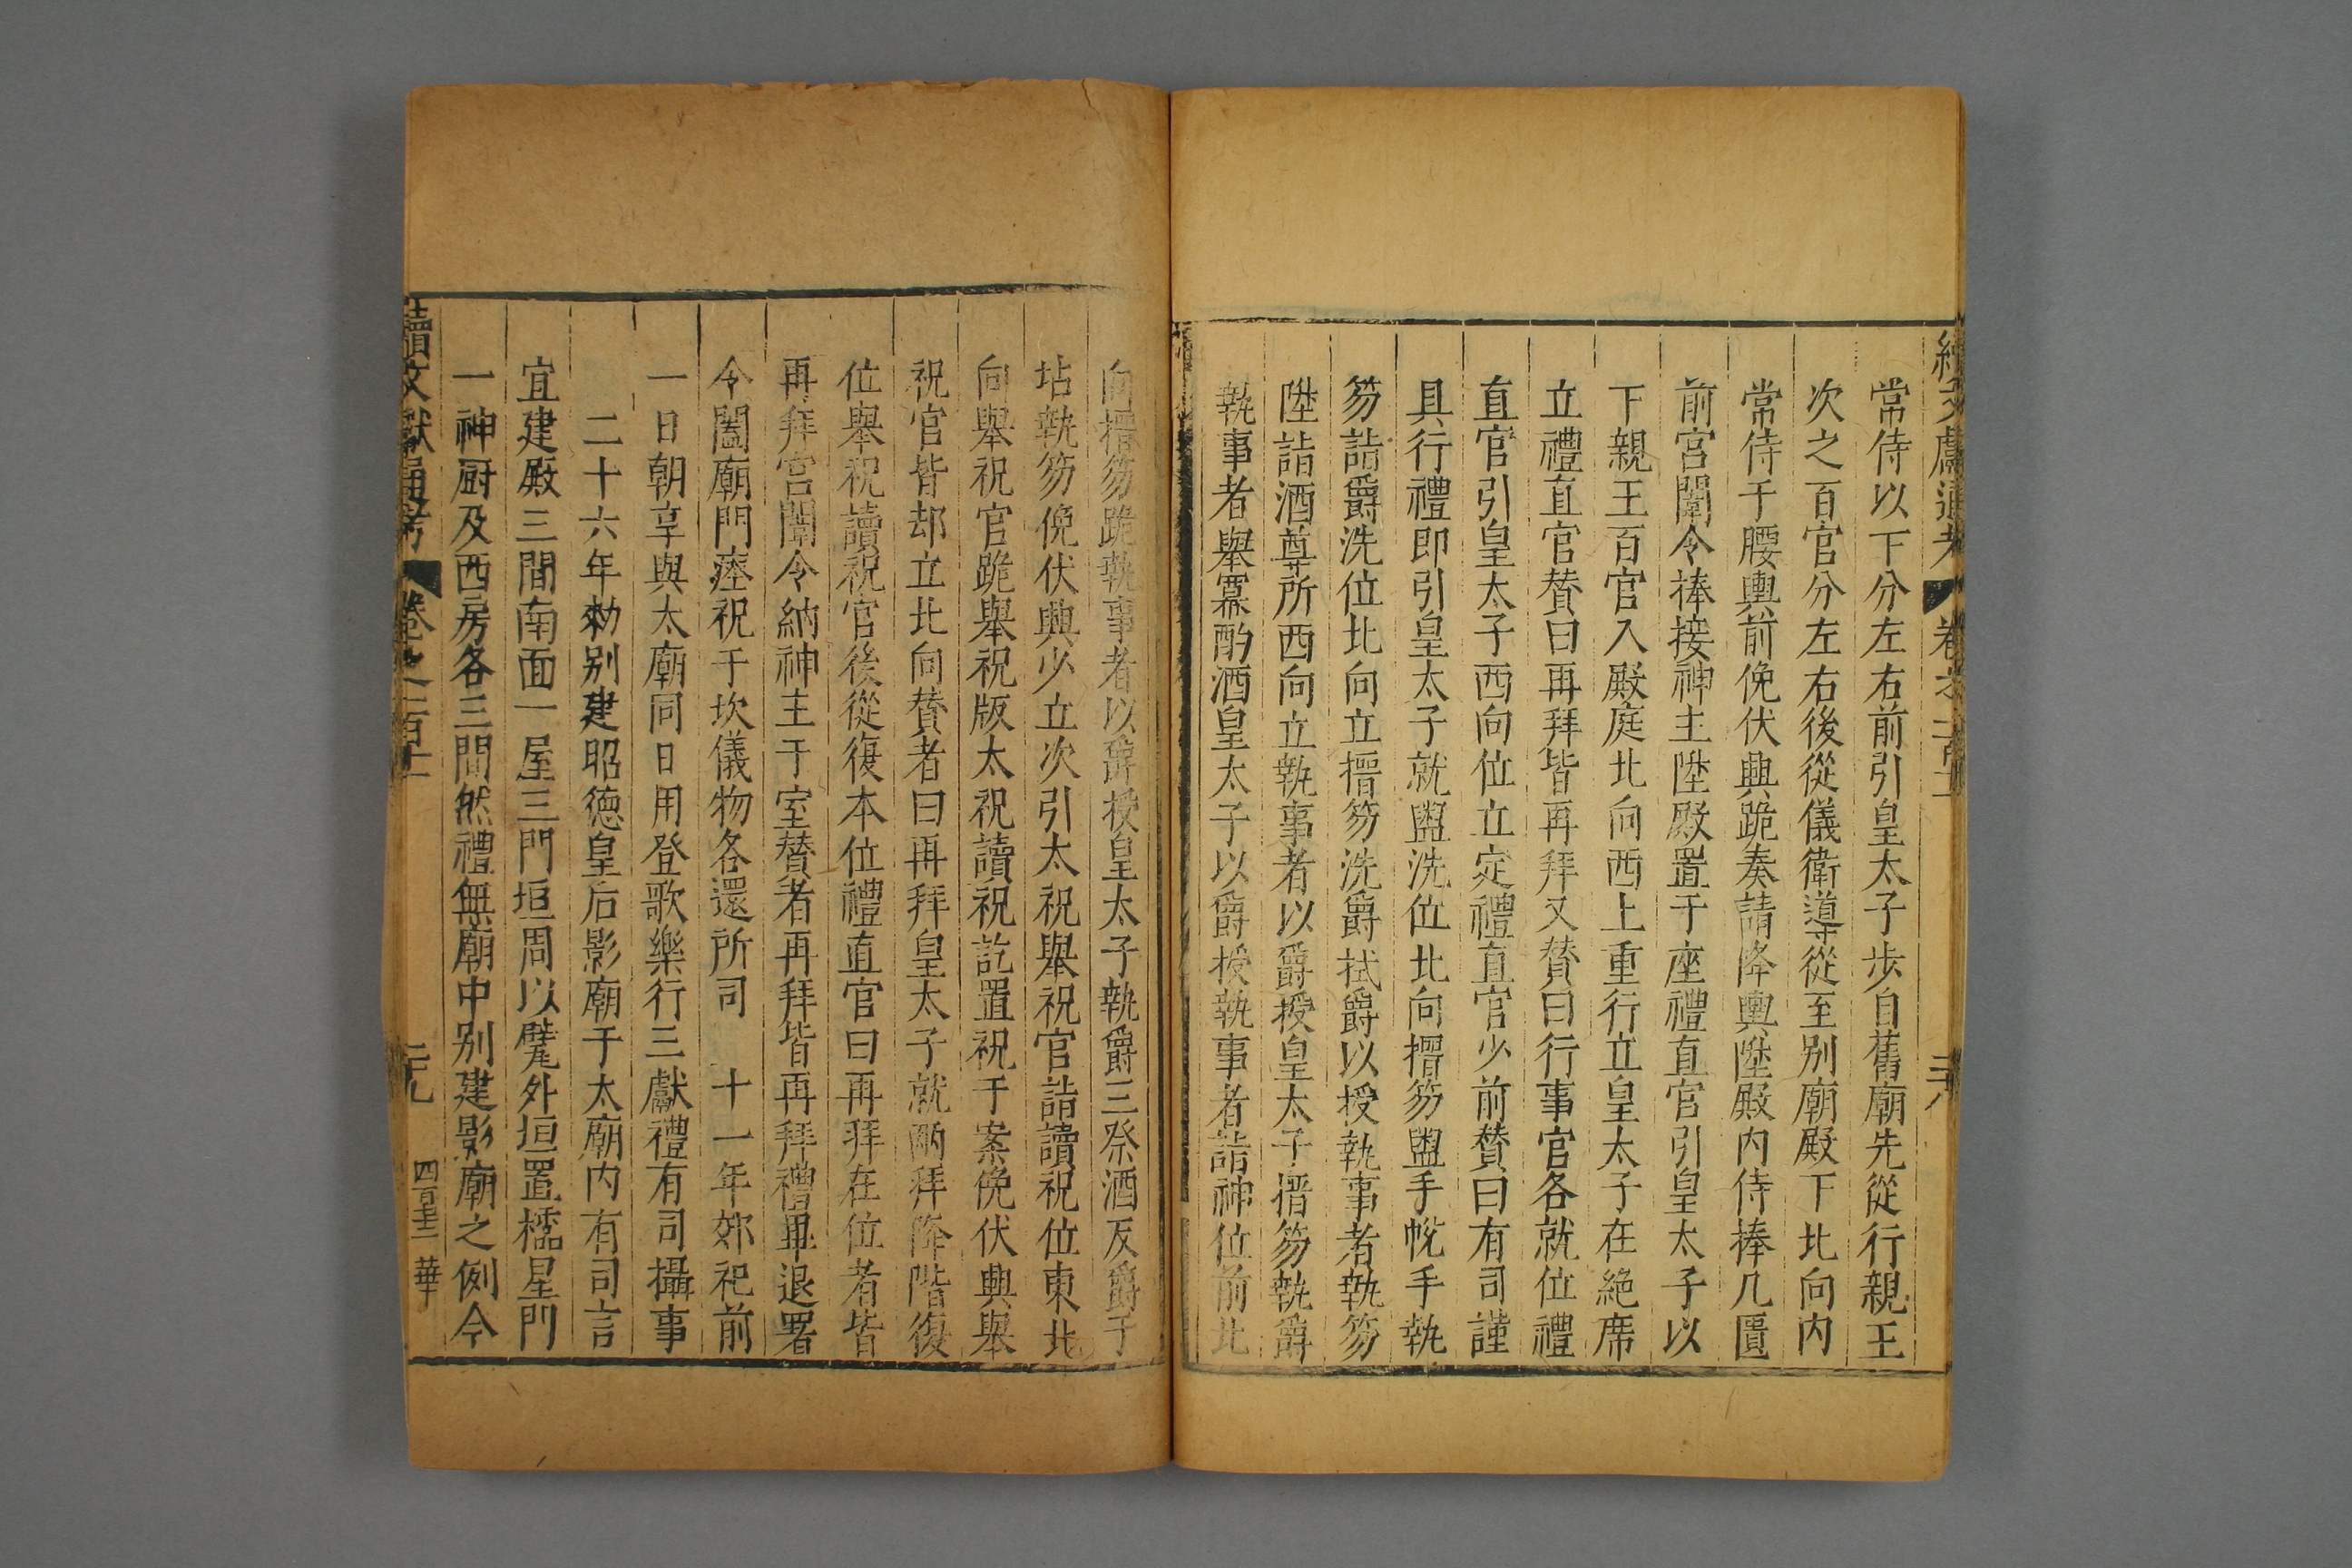 常侍以下分左右前引皇太子歩自舊廟先從行親王
次之百官分左右後從儀衛導從至别廟殿下北向内
常侍于腰輿前俛伏興跪奏請降輿陞殿内侍捧几匱
前宫闈令捧接神主陞殿置于座禮直官引皇太子以
下親王百官入殿庭北向西上重行立皇太子在絶席
立禮直官賛曰再拜皆再拜又賛曰行事官各就位禮
直官引皇太子西向位立定禮直官少前賛曰有司謹
具行禮即引皇太子就盥洗位北向搢笏盥手帨手執
笏詣爵洗位北向立搢笏洗爵拭爵以授執事者執笏
陞詣酒尊所西向立執事者以爵授皇太子搢笏執爵
執事者舉冪酌酒皇太子以爵授執事者詣神位前北
向搢笏跪執事者以爵授皇太子執爵三祭酒反爵于
坫執笏俛伏興少立次引太祝舉祝官詣讀祝位東北
向舉祝官跪舉祝版太祝讀祝訖置祝于案俛伏興舉
祝官皆却立北向賛者曰再拜皇太子就兩拜降階復
位舉祝讀祝官後從復本位禮直官曰再拜在位者皆
再拜宫闈令納神主于室賛者再拜皆再拜禮畢退署
令闔廟門瘞祝于坎儀物各還所司 十一年郊祀前
一日朝享與太廟同日用登歌樂行三獻禮有司攝事
二十六年勑别建昭德皇后影廟于太廟内有司言
宜建殿三間南面一屋三門垣周以甓外垣置櫺星門
一神厨及西房各三間然禮無廟中别建影廟之例今
續文獻通考 卷之二百十一 三十九 四百十三 華